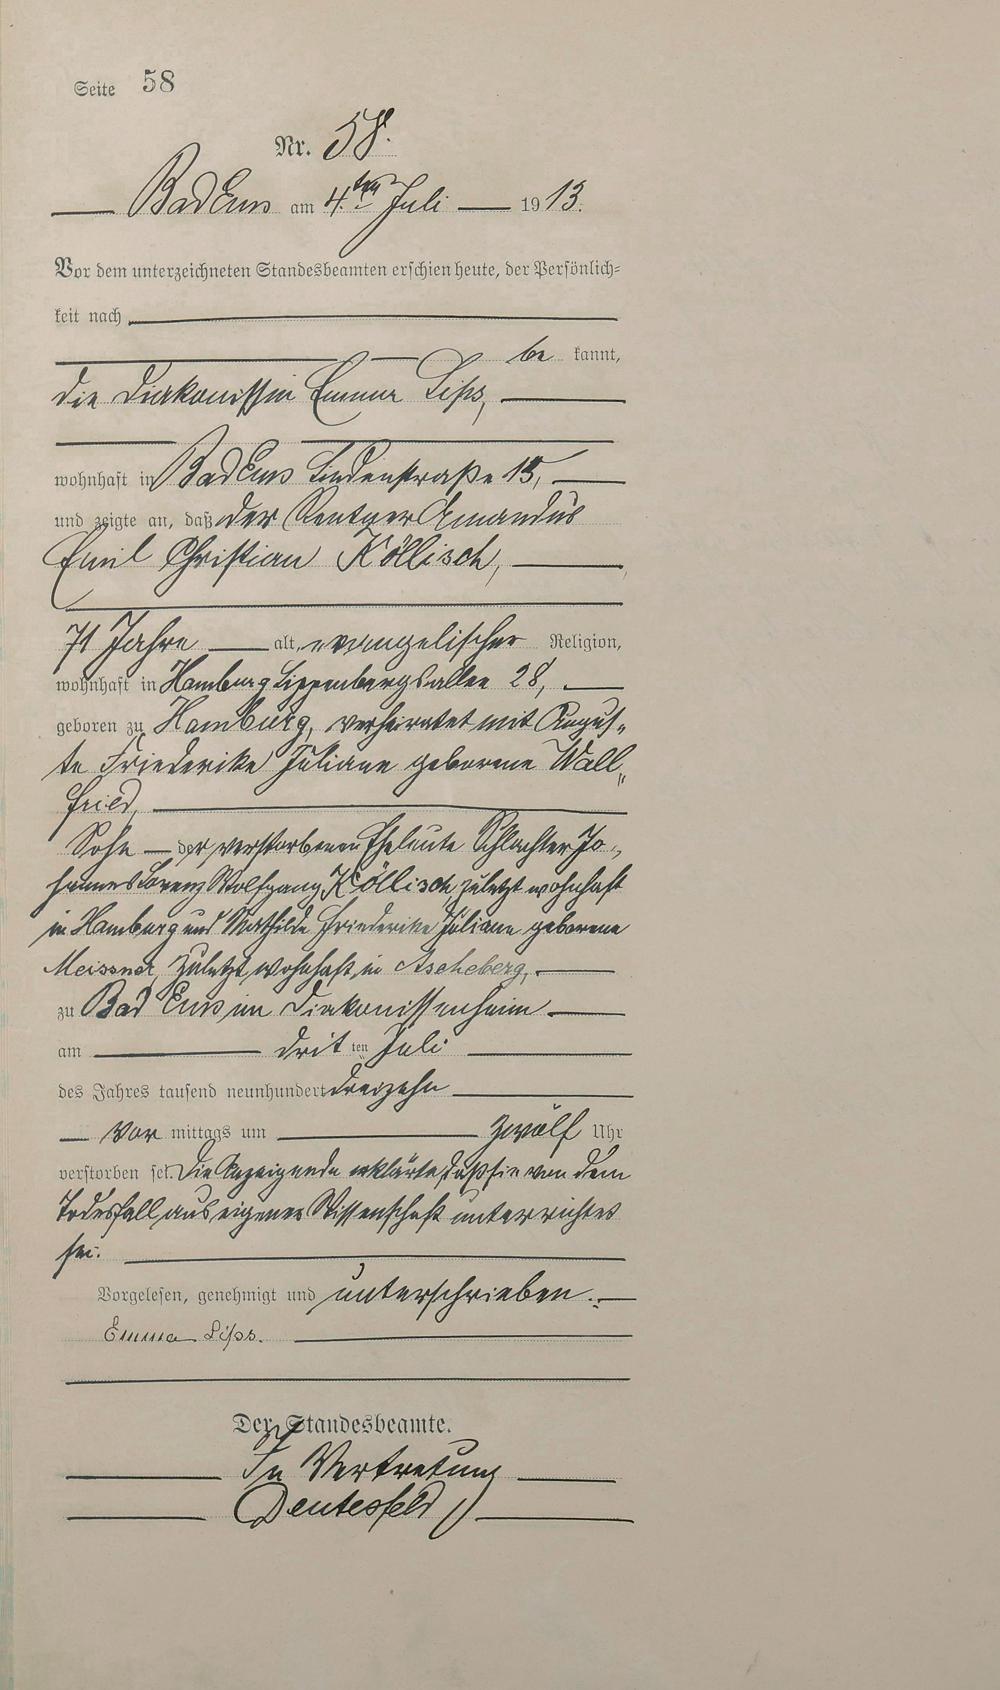 Seite 58
Nr. 58.
Bad Ems am 4.ten Juli 1913.
Vor dem unterzeichneten Standesbeamten erschien heute, der Persönlich-
keit nach
be kannt,
die Diakonissin Emma Lips,
wohnhaft in Bad Ems Lindenstraße 15,
und zeigte an, daß der Rentner Amandus
Emil Christian Köllisch,
71 Jahre alt, evangelischer Religion,
wohnhaft in Hamburg Lippenbergsallee 28,
geboren zu Hamburg, verheiratet mit Augus-
te Friederike Juliane geborene Wall-
fried,
Sohn der verstorbenen Eheleute Schlachter Jo-
hannes Lorenz Wolfgang Köllisch, zuletzt wohnhaft
in Hamburg und Mathilde Friederike Juliane geborene
Meissner, zuletzt wohnhaft in Ascheberg,
zu Bad Ems im Diakonissenheim
am dritten Juli
des Jahres tausend neunhundert dreizehn
Vor mittags um zwölf Uhr
verstorben sei. Die Anzeigende erklärte, daß sie von dem
Todesfall aus eigener Wissenschaft unterrichtet
sei.
Vorgelesen, genehmigt und unterschrieben.
Emma Lips.
Der Standesbeamte.
In Vertretung